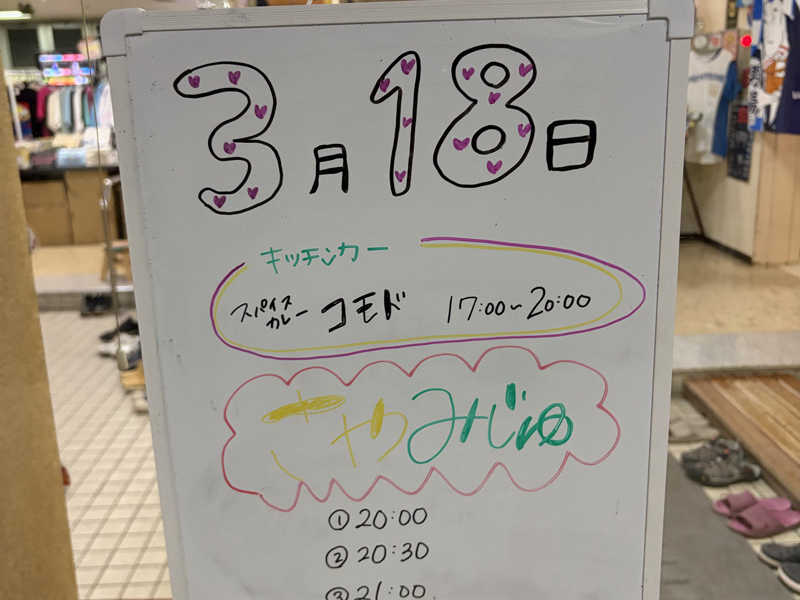 3月18日
キッチンカー
スパイスカレー コモド 17:00~20:00
きゃりみじゅ
① 20:00
② 20:30
③ 21:00